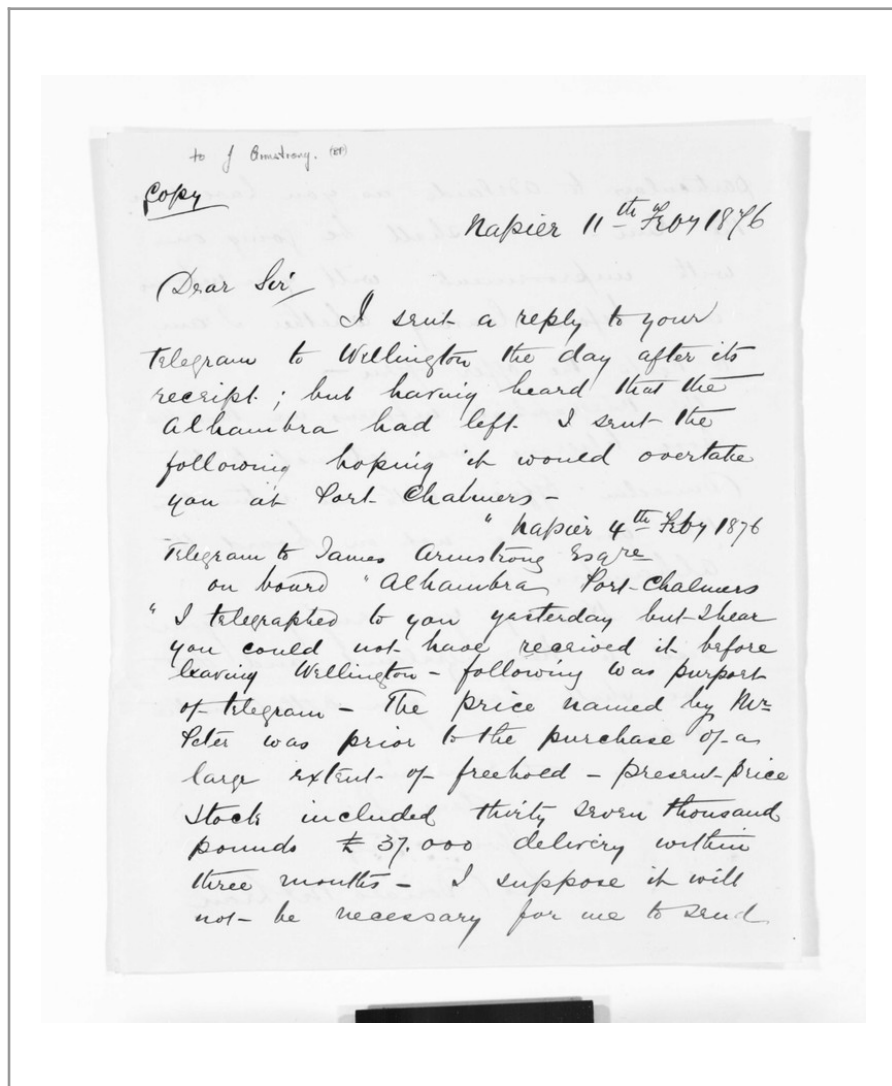 to J Armstrong. (EP)
Copy
Napier 11th Feby 1876
Dear Sir
I sent a reply to your
telegram to Wellington the day after its
receipt; but having heard that the
Alhambra had left I sent the
following hoping it would overtake
you at Port Chalmers –
" Napier 4th Feby 1876
Telegram to James Armstrong Esqre
on board "Alhambra Port Chalmers
" I telegraphed to you yesterday but I hear
you could not have received it before
leaving Wellington – following was purport
of telegram – The price named by Mr
Peter was prior to the purchase of a
large extent of freehold – present price
stock included thirty seven thousand
pounds £37.000 delivery within
three months – I suppose it will
not be necessary for me to send